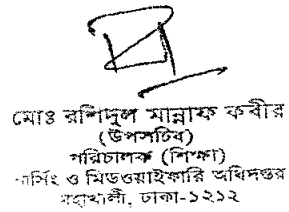 মোঃ রশিদুল মান্নাফ কবীর
(উপসচিব)
পরিচালক (শিক্ষা)
নার্সিং ও মিডওয়াইফারি অধিদপ্তর
মহাখালী, ঢাকা-১২১২